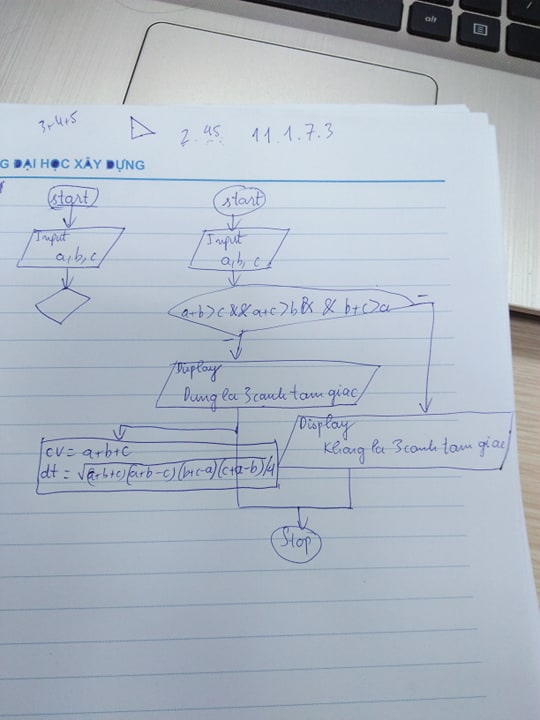 alt
3+4+5
2.45 11.1.7.3
G ĐẠI HỌC XÂY DỰNG
start
Input
a, b, c
start
Input
a, b, c
a+b>c && a+c>b & & b+c>a
Display
Dung la 3 canh tam giac
Display
Khong la 3 canh tam giac
cv = a+b+c
dt = √(a+b+c)(a+b-c)(b+c-a)(c+a-b)/4
Stop